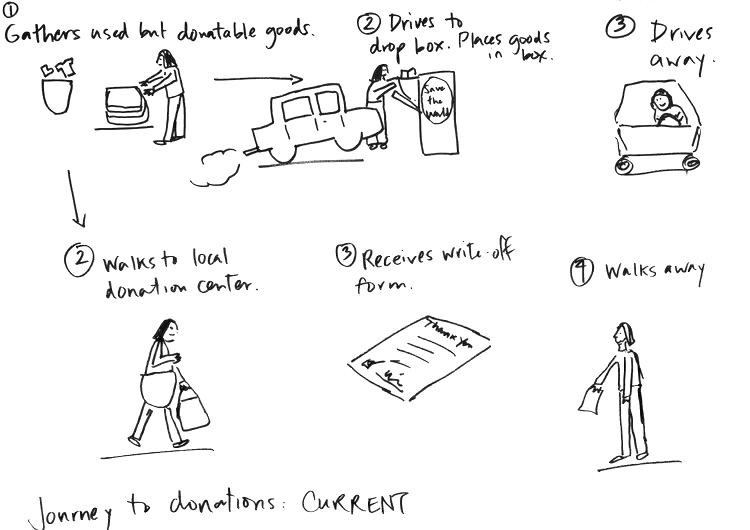 ①
Gathers used but donatable goods.
② Drives to
drop box. Places goods
in box.
③ Drives
away.
Save
the
World
② Walks to local
donation center.
③ Receives write-off
form.
Thank you
④ Walks away
Journey to donations: CURRENT